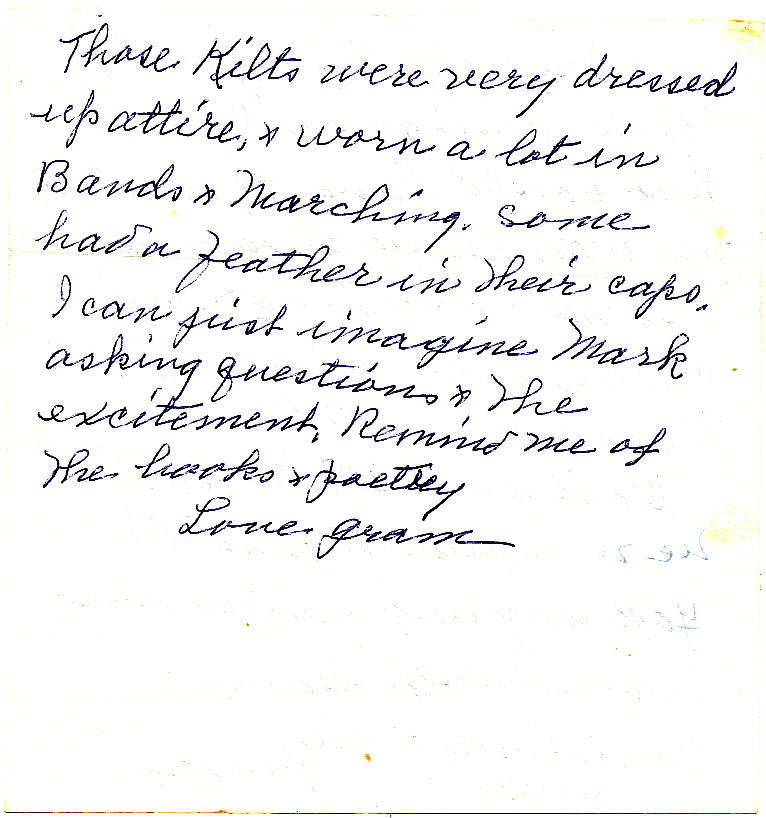 Those Kilts were very dressed
up attire, & worn a lot in
Bands & Marching. Some
had a feather in their caps.
I can just imagine Mark
asking questions & the
excitement. Remind me of
the books & poetry
Love gram